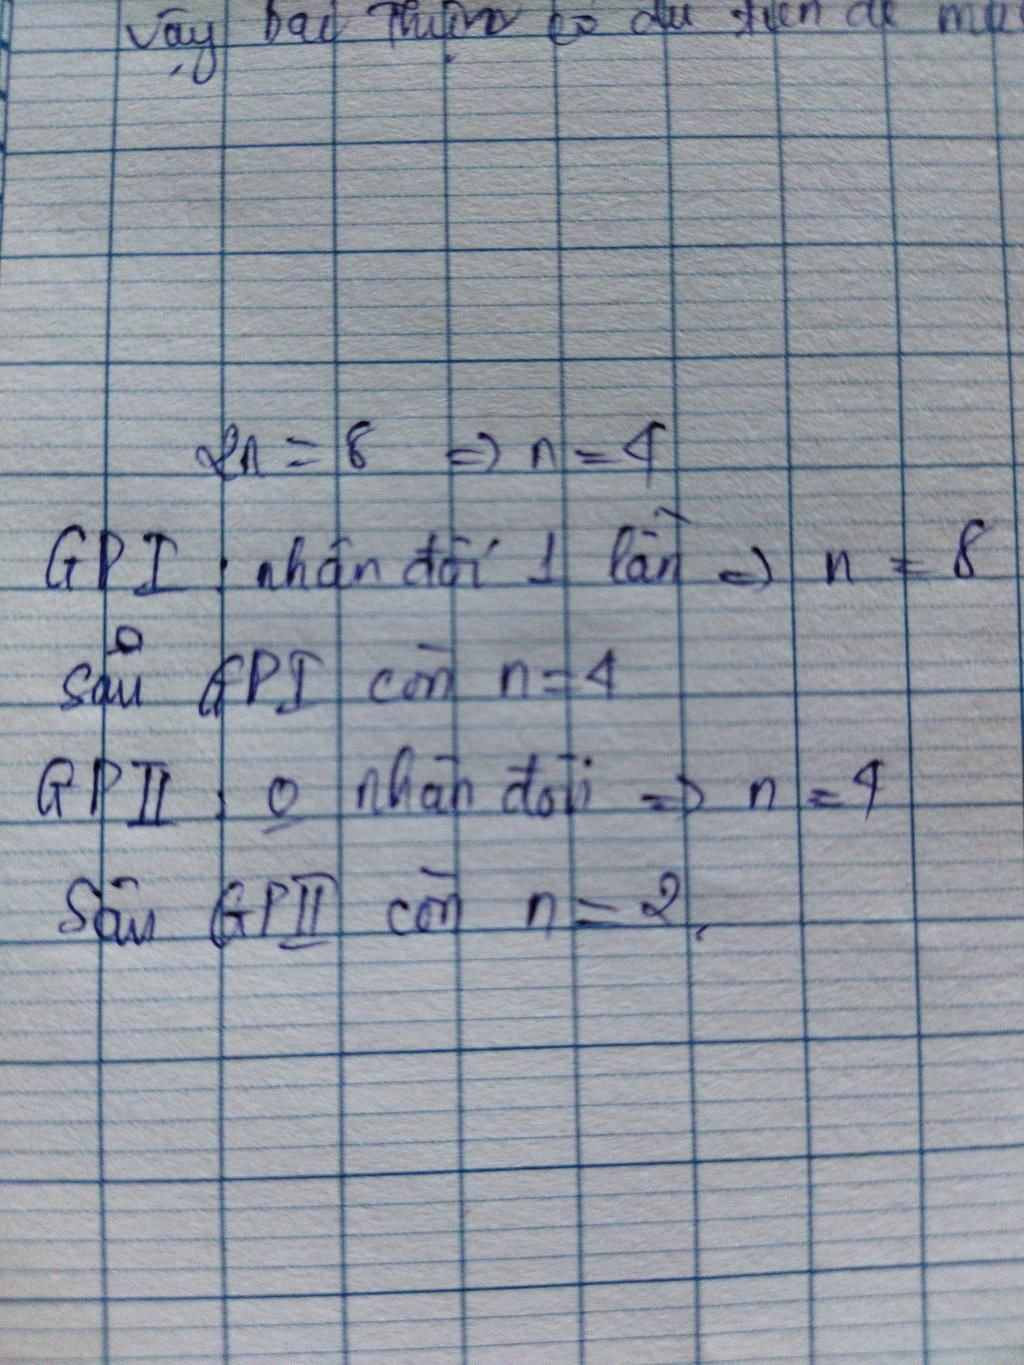 Vậy bác Thiện có đủ tiền để mu
2n = 8 => n = 4
GPI : nhân đôi 1 lần => n = 8
Sau GPI còn n = 4
GPII : o nhân đôi => n = 4
Sau GPII còn n = 2.